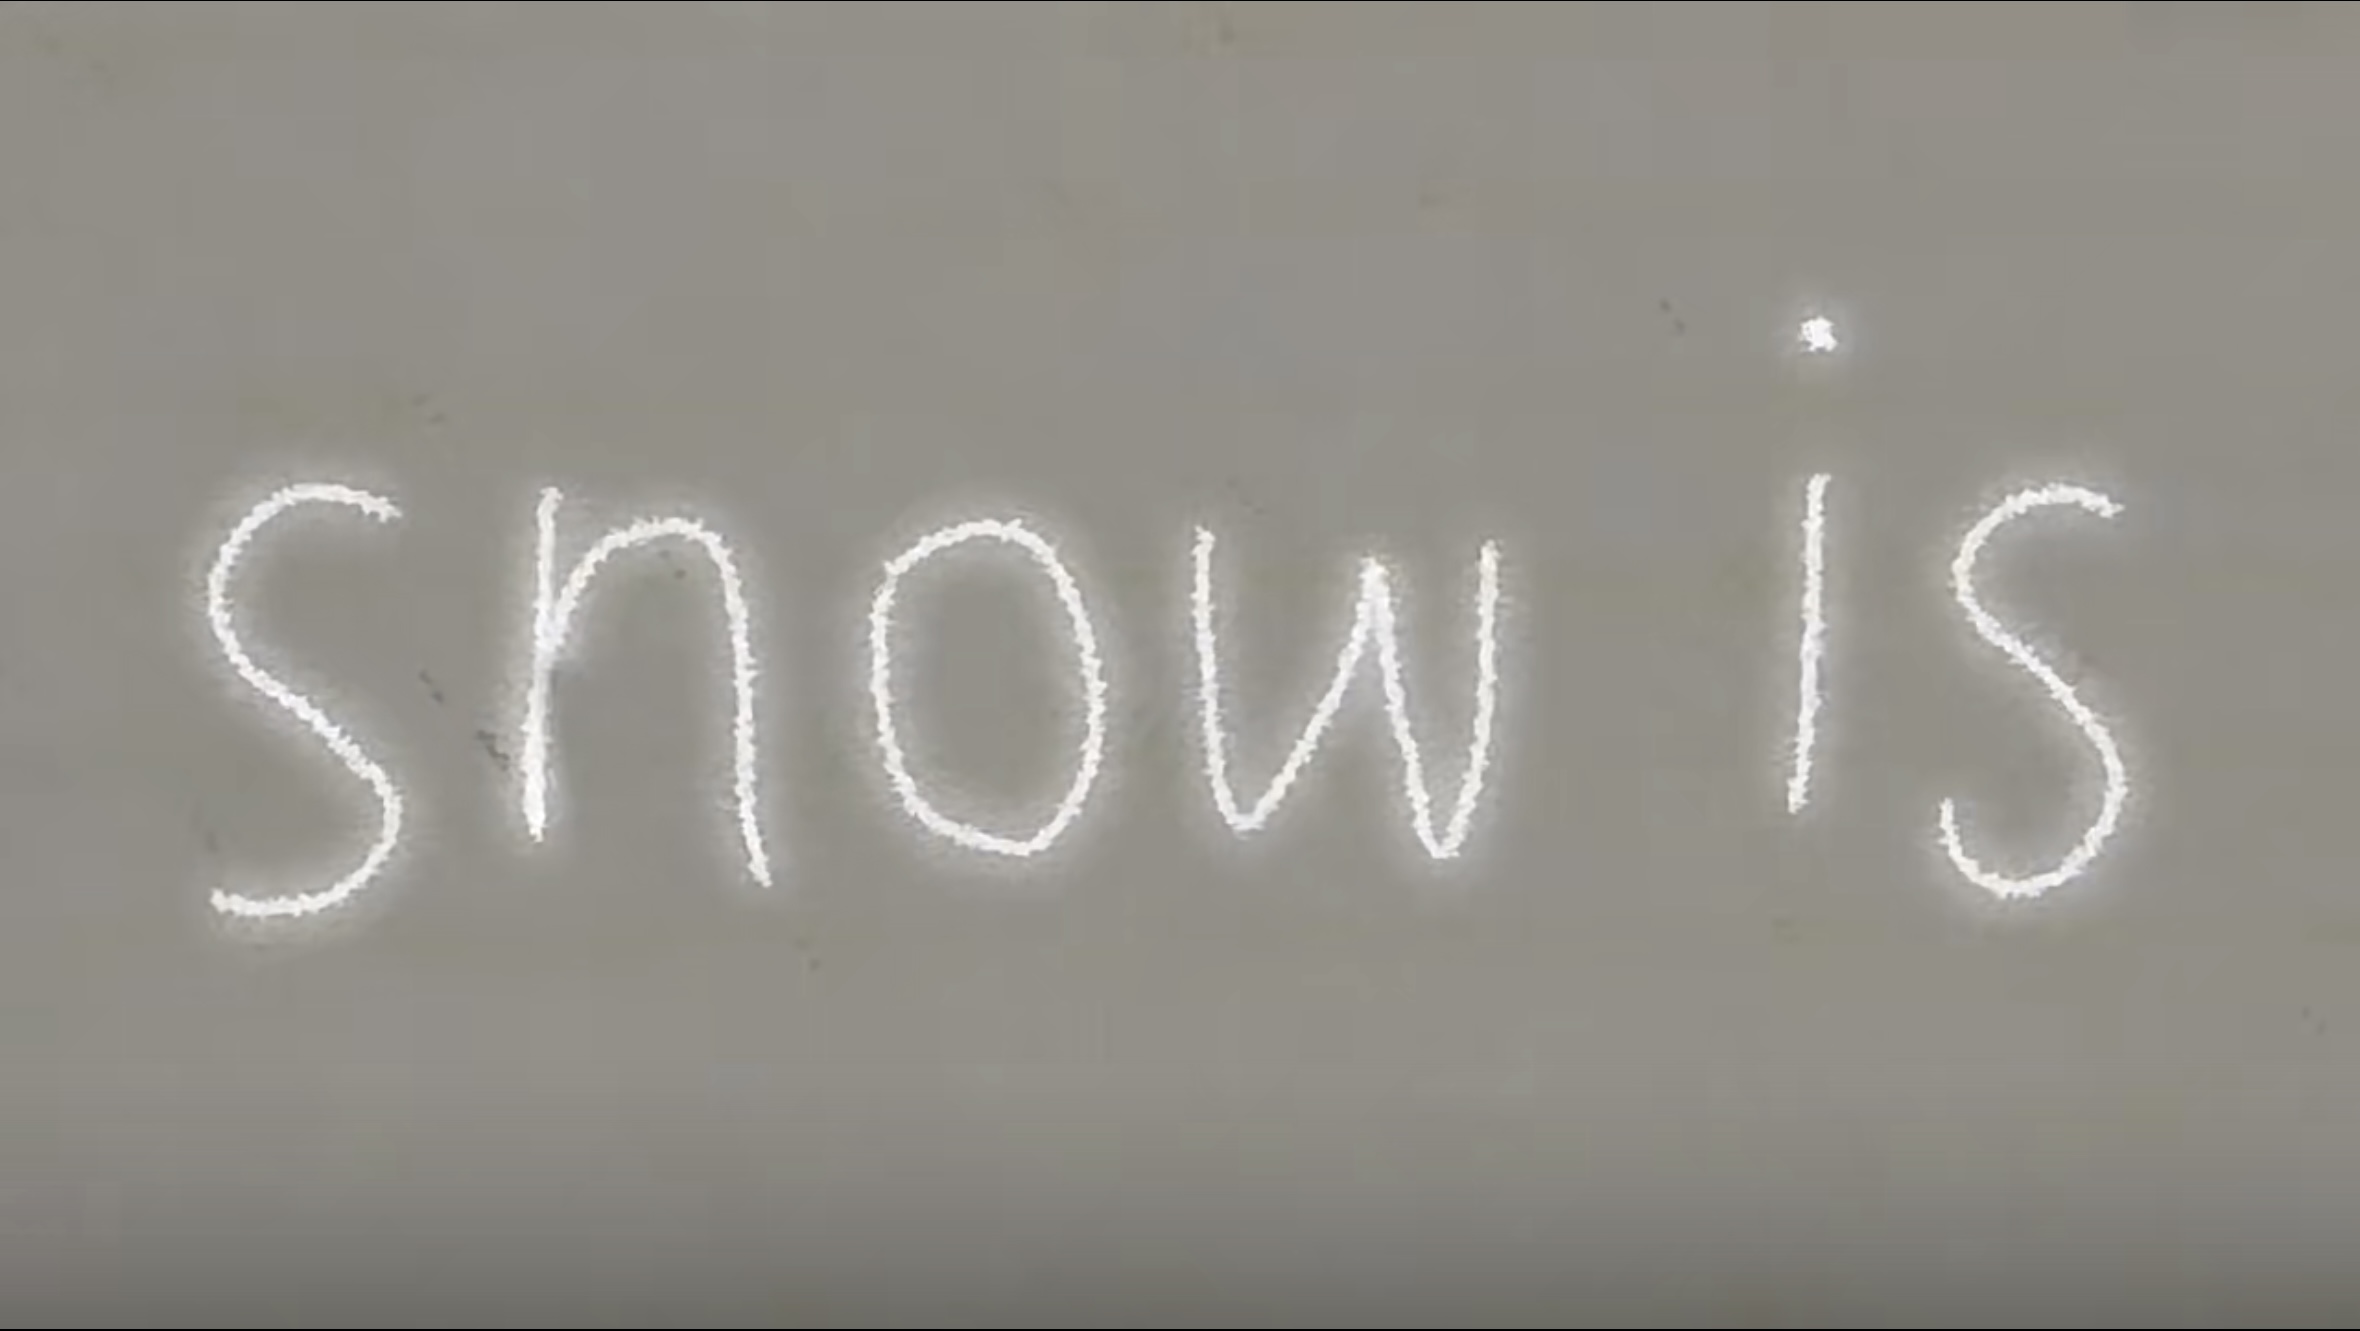 snow is